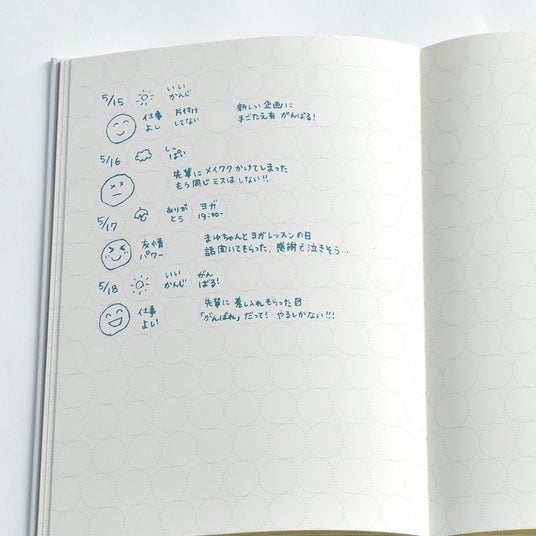 5/15 いい
かんじ
仕事 片付け
よし してない
新しい企画に
手ごたえ有 がんばる!
5/16 しっ
ぱい
先輩にメイワクかけてしまった
もう同じミスはしない!!
5/17 ありが ヨガ
とう 19:00-
友情
パワー
まゆちゃんとヨガレッスンの日
話聞いてもらった。感謝で泣きそう…
5/18 いい がん
かんじ ばる!
仕事
よし!
先輩に差し入れもらった
「がんばれ」だって! やるしかない!!!